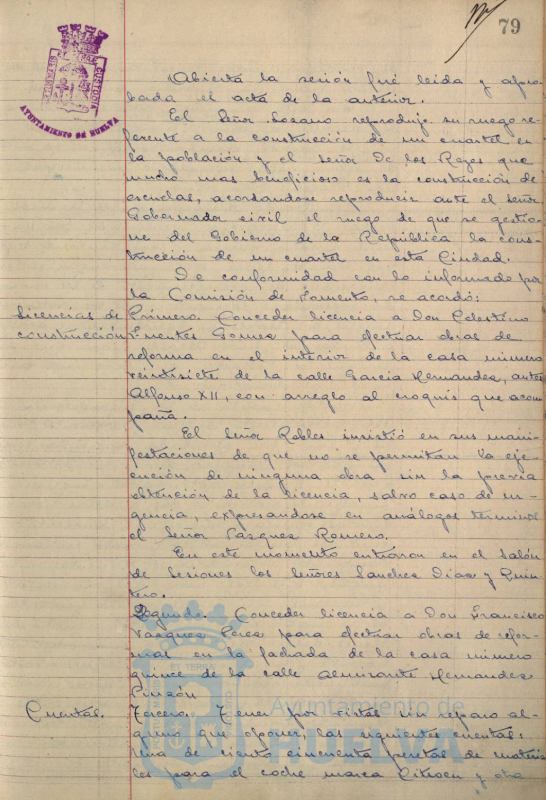 79
AYUNTAMIENTO DE HUELVA
Abierta la sesión fué leida y apro-
bada el acta de la anterior.
El Señor Lozano reproduje su ruego re-
ferente a la construcción de un cuartel en
la población y el señor De los Reyes que
mucho mas beneficioso es la construcción de
escuelas, acordandose reproducir ante el señor
Gobernador civil el ruego de que se gestio-
ne del Gobierno de la República la cons-
trucción de un cuartel en esta Ciudad.
De conformidad con lo informado por
la Comisión de Fomento, se acordó:
Licencias de
construcción
Primero. Conceder licencia a Don Celestino
Fuentes Gomez para efectuar obras de
reforma en el interior de la casa número
veintisiete de la calle Garcia Hernandez, antes
Alfonso XII, con arreglo al croquis que acom
paña.
El Señor Robles insistió en sus mani-
festaciones de que no se permitan la eje-
cución de ninguna obra sin la previa
obtención de la licencia, salvo caso de ur-
gencia, expresandose en análogos terminos
el Señor Vazquez Romero.
En este momento entraron en el Salón
de Sesiones los Señores Sanchez Diaz y Quin-
tero.
Segundo. Conceder licencia a Don Francisco
Vazquez Perez para efectuar obras de refor-
mas en la fachada de la casa número
quince de la calle Almirante Hernandez
Pinzón
Cuentas.
Tercero. Tener por vistas sin reparo al-
guno que oponer, las siguientes cuentas:
Una de ciento cincuenta pesetas de materia
les para el coche marca Citroen y otra
Ayuntamiento de
HUELVA